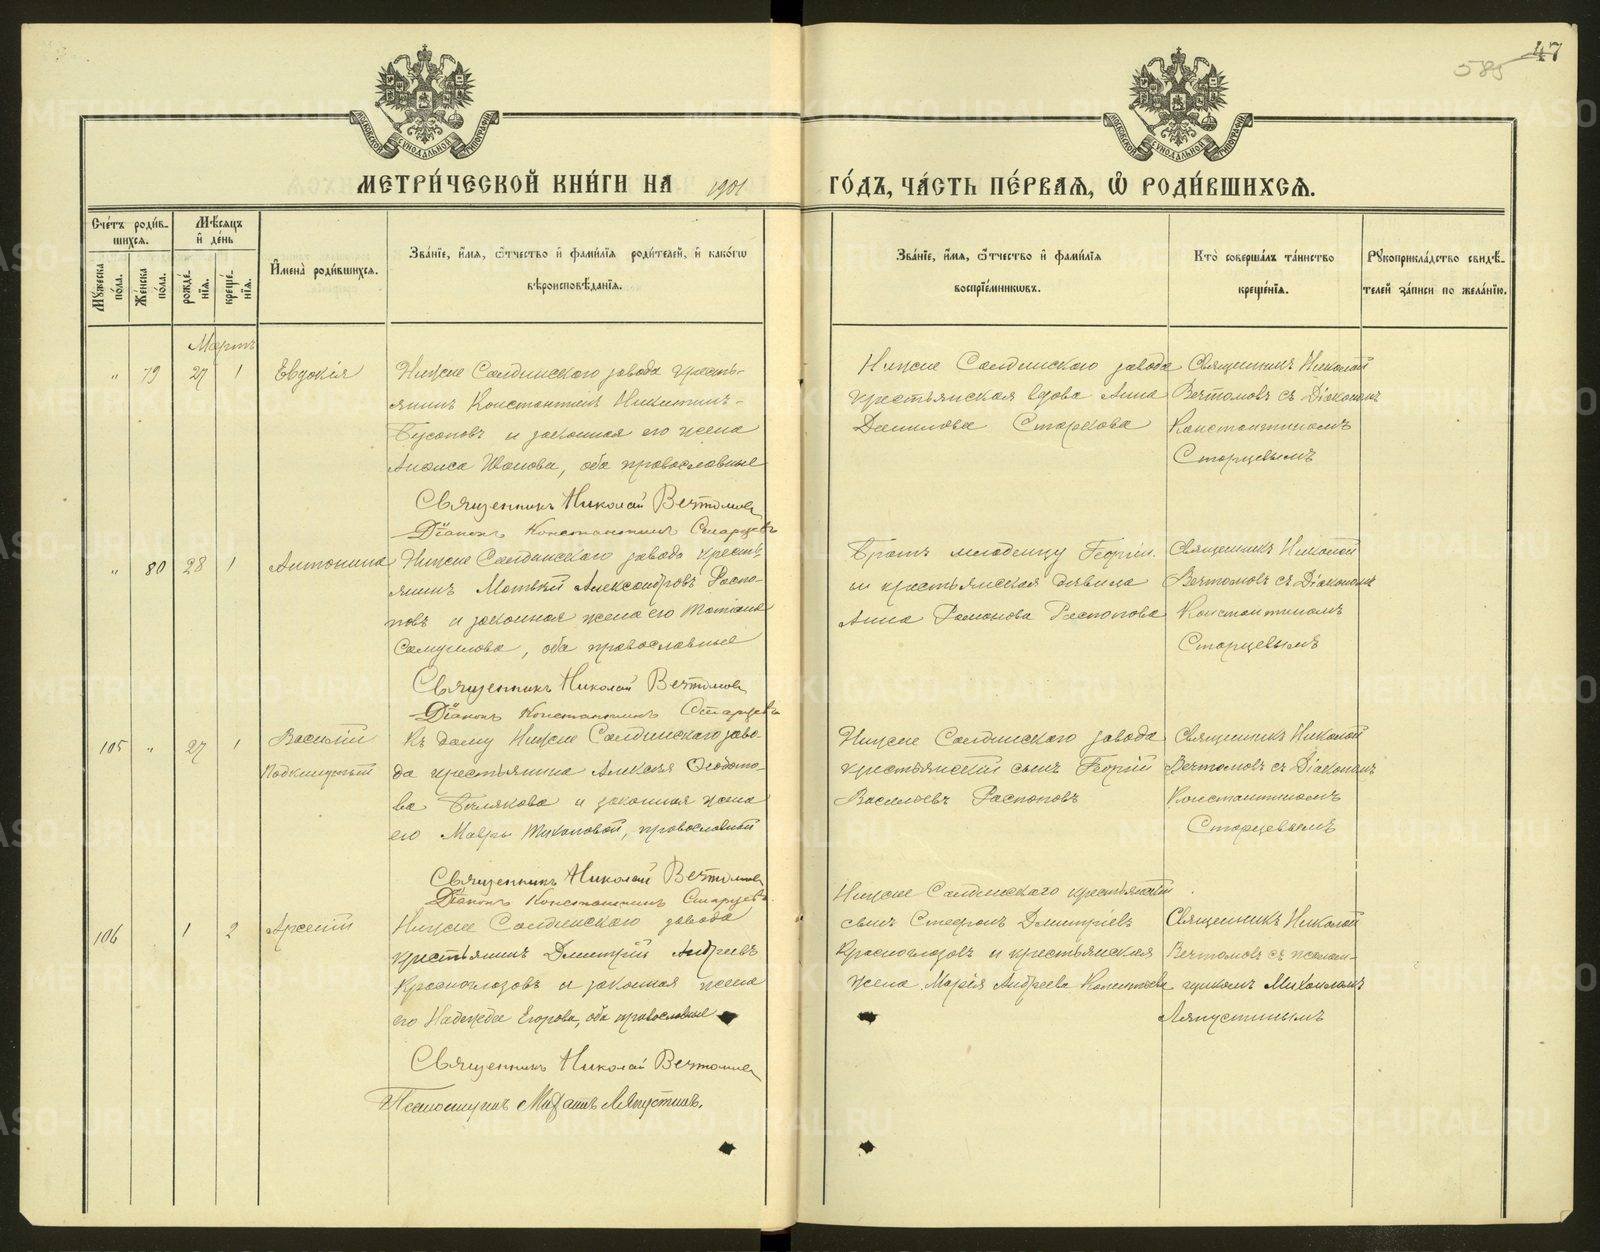 585 47
МОСКОВСКОЙ СУНОДАЛЬНОЙ ТИПОГРАФІИ
МОСКОВСКОЙ СУНОДАЛЬНОЙ ТИПОГРАФІИ
МЕТРИ́ЧЕСКОЙ КНИ́ГИ НА 1901 ГО́ДЪ, ЧА́СТЬ ПЕ́РВАѦ, Ѡ҆ РОДИ́ВШИХСѦ.
Сче́тъ роди́в-
шихсѧ.
Мѣ́сѧцъ
и҆ де́нь
Мꙋ́жеска
по́ла.
Же́нска
по́ла.
рожде́-
нїѧ.
креще́-
нїѧ.
И҆мена̀ роди́вшихсѧ.
Зва́нїе, и҆́мѧ, ѻ҆́тчество и҆ фами́лїѧ роди́телей, и҆ како́гѡ
вѣроисповѣ́данїѧ.
Зва́нїе, и҆́мѧ, ѻ҆́тчество и҆ фами́лїѧ
воспрїе́мникѡвъ.
Кто̀ соверша́лъ та́инство
креще́нїѧ.
Рꙋкоприкла́дство свидѣ́-
телей за́писи по жела́нїю.
Мартъ
„ 79 27 1 Евдокія
Нижне Салдинскаго завода кресть-
янинъ Константинъ Никитинъ
и законная его жена
Анфиса Иванова, оба православные
Священникъ Николай Вечтомовъ
Діаконъ Константинъ Старцевъ
Нижне Салдинскаго завода
крестьянская вдова Анна
Данилова Старкова
Священникъ Николай
Вечтомовъ съ Діакономъ
Константиномъ
Старцевымъ
„ 80 28 1 Антонина
Нижне Салдинскаго завода кресть-
янинъ Матвѣй Александровъ Распо-
повъ и законная жена его Татіана
Самуилова, оба православные
Священникъ Николай Вечтомовъ
Діаконъ Константинъ Старцевъ
Братъ младенцу Георгій
и крестьянская дѣвица
Анна Романова Распопова
Священникъ Николай
Вечтомовъ съ Діакономъ
Константиномъ
Старцевымъ
105 „ 27 1 Василій
Подкинутый
Къ дому Нижне Салдинскаго заво-
да крестьянина Алексѣя Ѳедото-
ва Бѣлякова и законная жена
его Мавры Тихоновой, православной
Священникъ Николай Вечтомовъ
Діаконъ Константинъ Старцевъ
Нижне Салдинскаго завода
крестьянскій сынъ Георгій
Васильевъ Распоповъ
Священникъ Николай
Вечтомовъ съ Діакономъ
Константиномъ
Старцевымъ
106 1 2 Арсеній
Нижне Салдинскаго завода
крестьянинъ Дмитрій Андреевъ
Красноглазовъ и законная жена
его Надежда Егорова, оба православные
Священникъ Николай Вечтомовъ
Псаломщикъ Михаилъ Ляпустинъ.
Нижне Салдинскаго крестьянскій
сынъ Стефанъ Дмитріевъ
Красноглазовъ и крестьянская
жена Марія Андреева
Священникъ Николай
Вечтомовъ съ псалом-
щикомъ Михаиломъ
Ляпустинымъ
METRIKI.GASO-URAL.RU